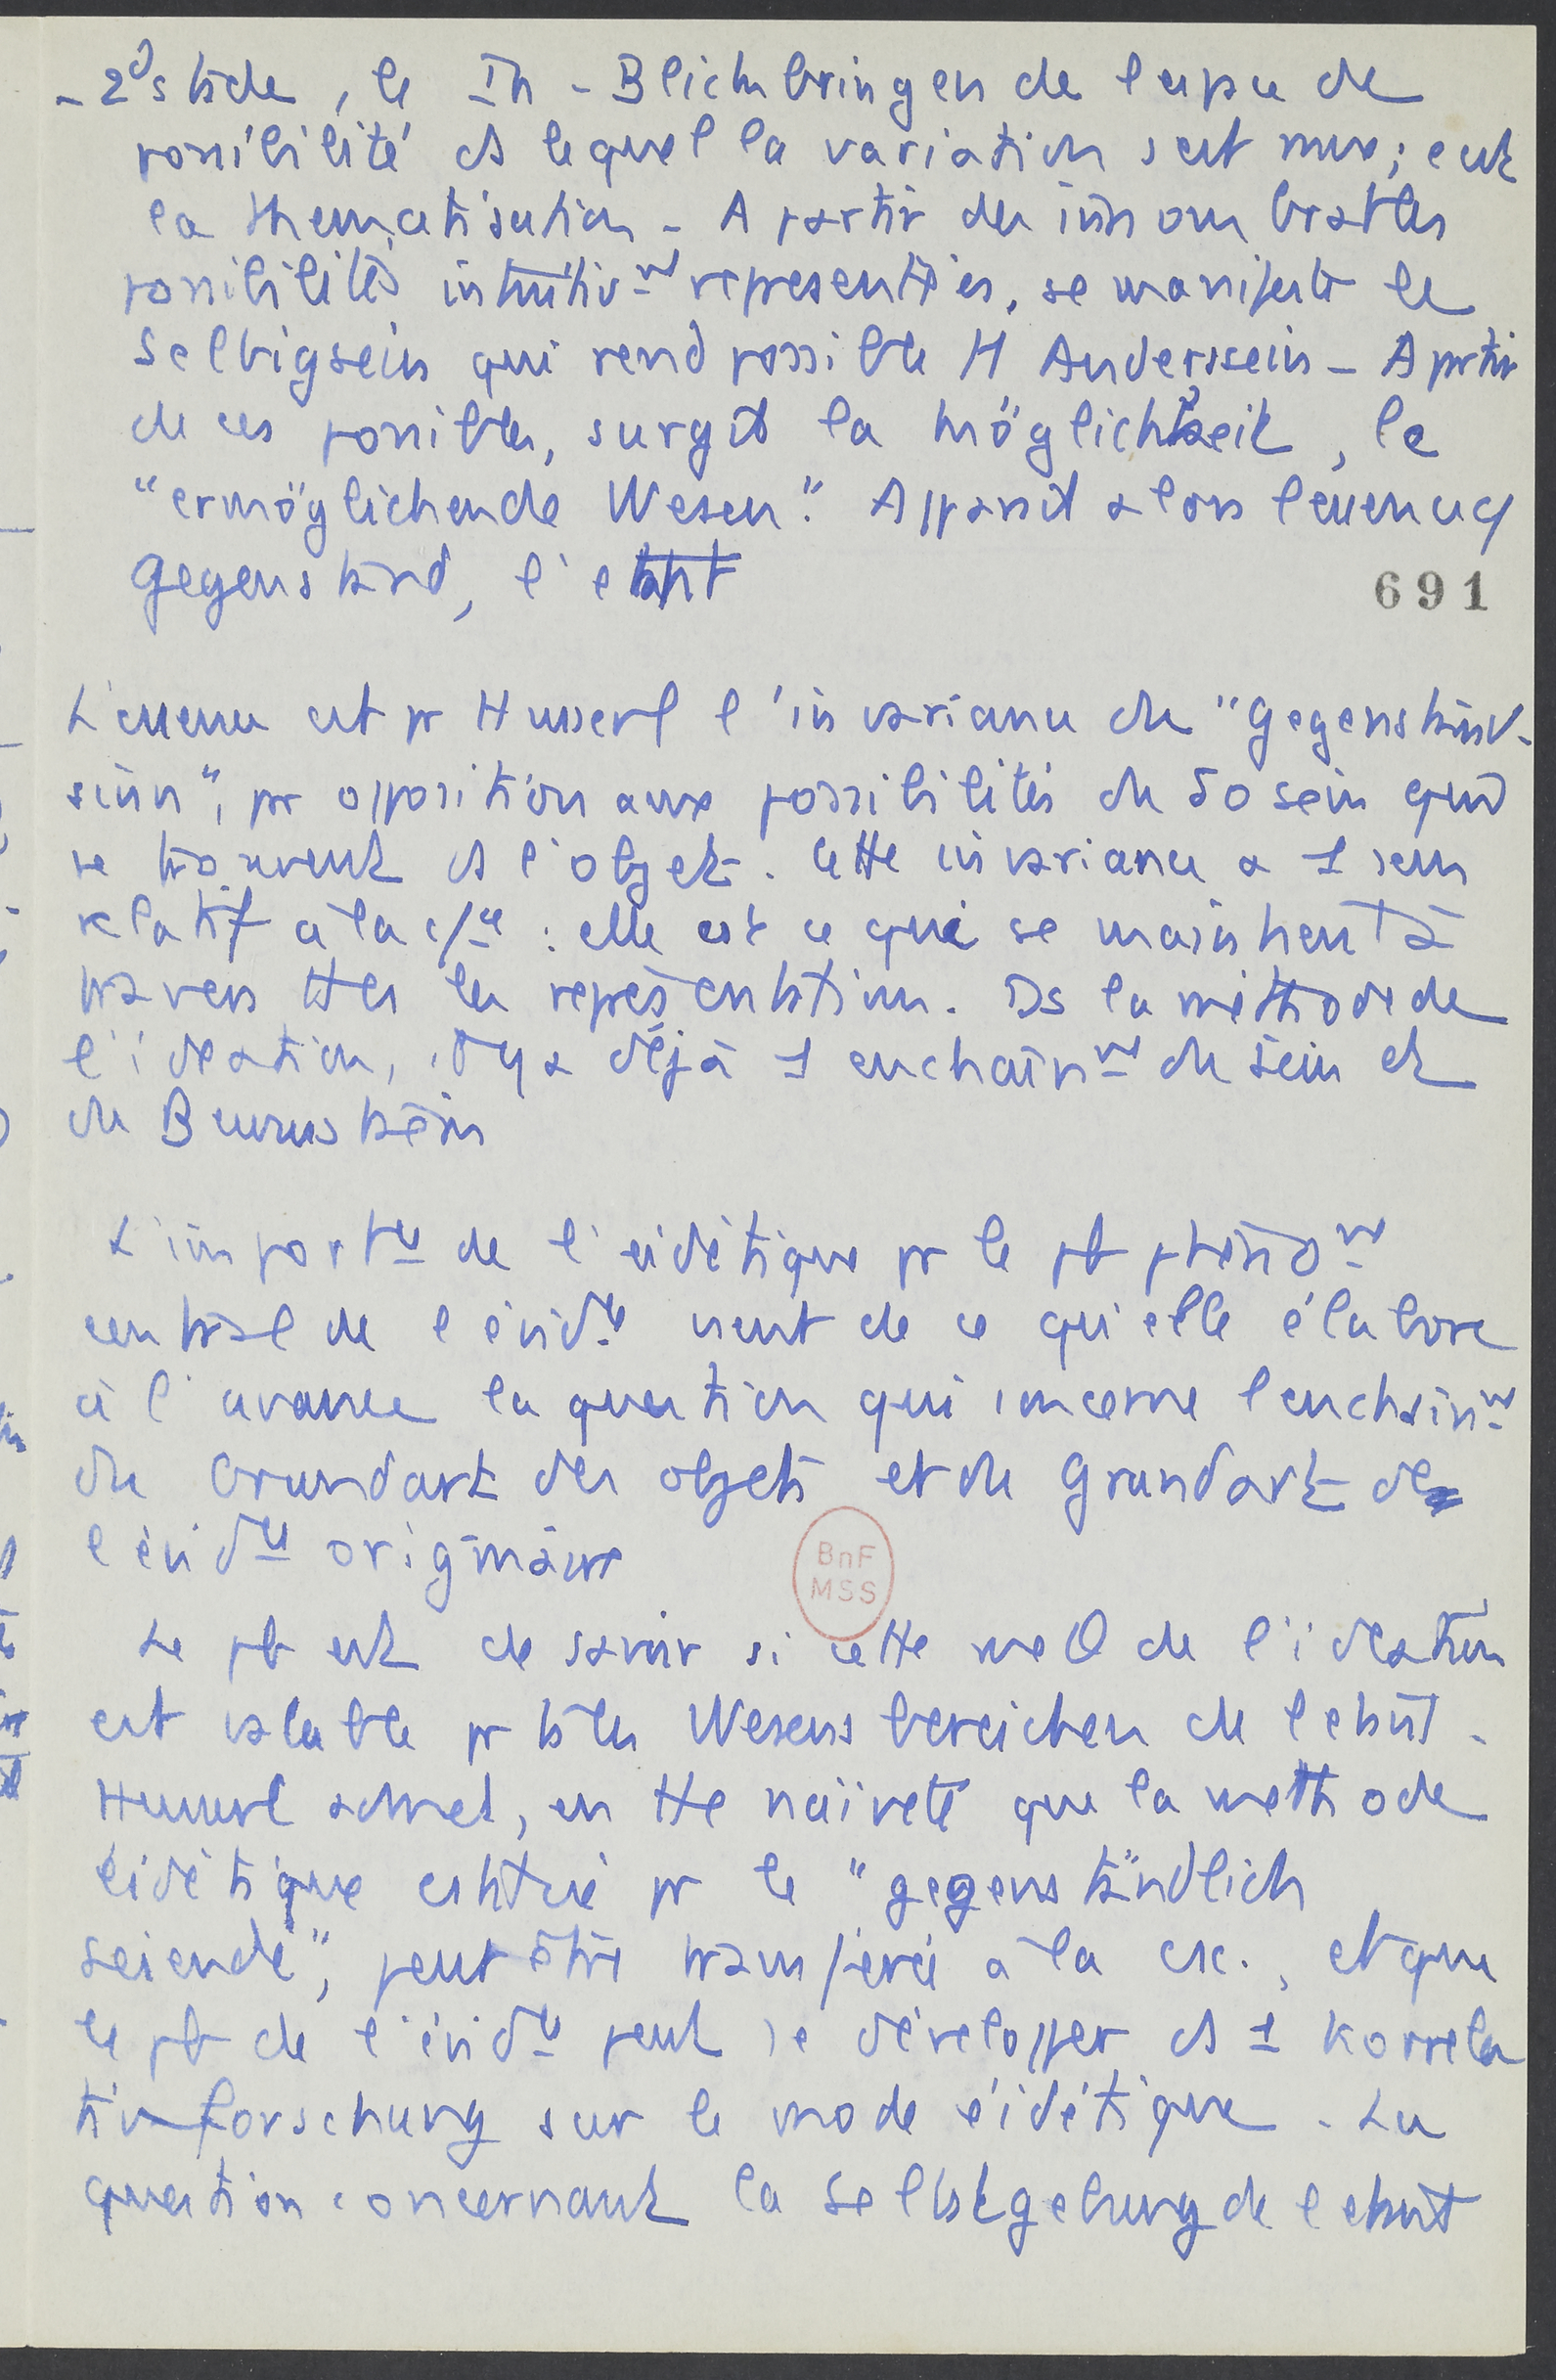 - 2d stade, le In-Blick bringen de l'espace de
possibilité ds lequel la variation s'est mue; c'est
la thématisation - A partir des innombrables
possibilités intuitivt représentées, se manifeste le
Selbigsein qui rend possible tt Anderssein - A partir
de ces possibles, surgit la Möglichkeit, le
"ermöglichende Wesen". Apparaît alors l'essence
Gegenstand, l'etant
691
L'essence est pr Husserl l'invariance du "Gegenstand-
sinn", pr opposition aux possibilités du Sosein qui
se trouvent ds l'objet. Cette invariance a 1 sens
relatif à la csce : elle est ce qui se maintient à
travers ttes les représentations. Ds la méthode de
l'idéation, il y a déjà 1 enchaînt du Sein et
du Bewusstsein
L'importce de l'eidétique pr le pb phéno
central de l'évidce vient de ce qu'elle élabore
à l'avance la question qui concerne l'enchaînt
du Grundart des objets et du Grundart de
l'évidce originaire
Le pb est de savoir si cette de l'idéation
est valable pr ts les Wesensbereichen de l'etant.
Husserl admet, en tte naïveté que la méthode
eidétique pr le "gegenständlich
seiende", peut être transférée à la csc., et que
le pb de l'évidce peut se développer ds 1 Korrela
tivforschung sur le mode eidétique. La
question concernant la Selbstgebung de l'etant
BnF
MSS